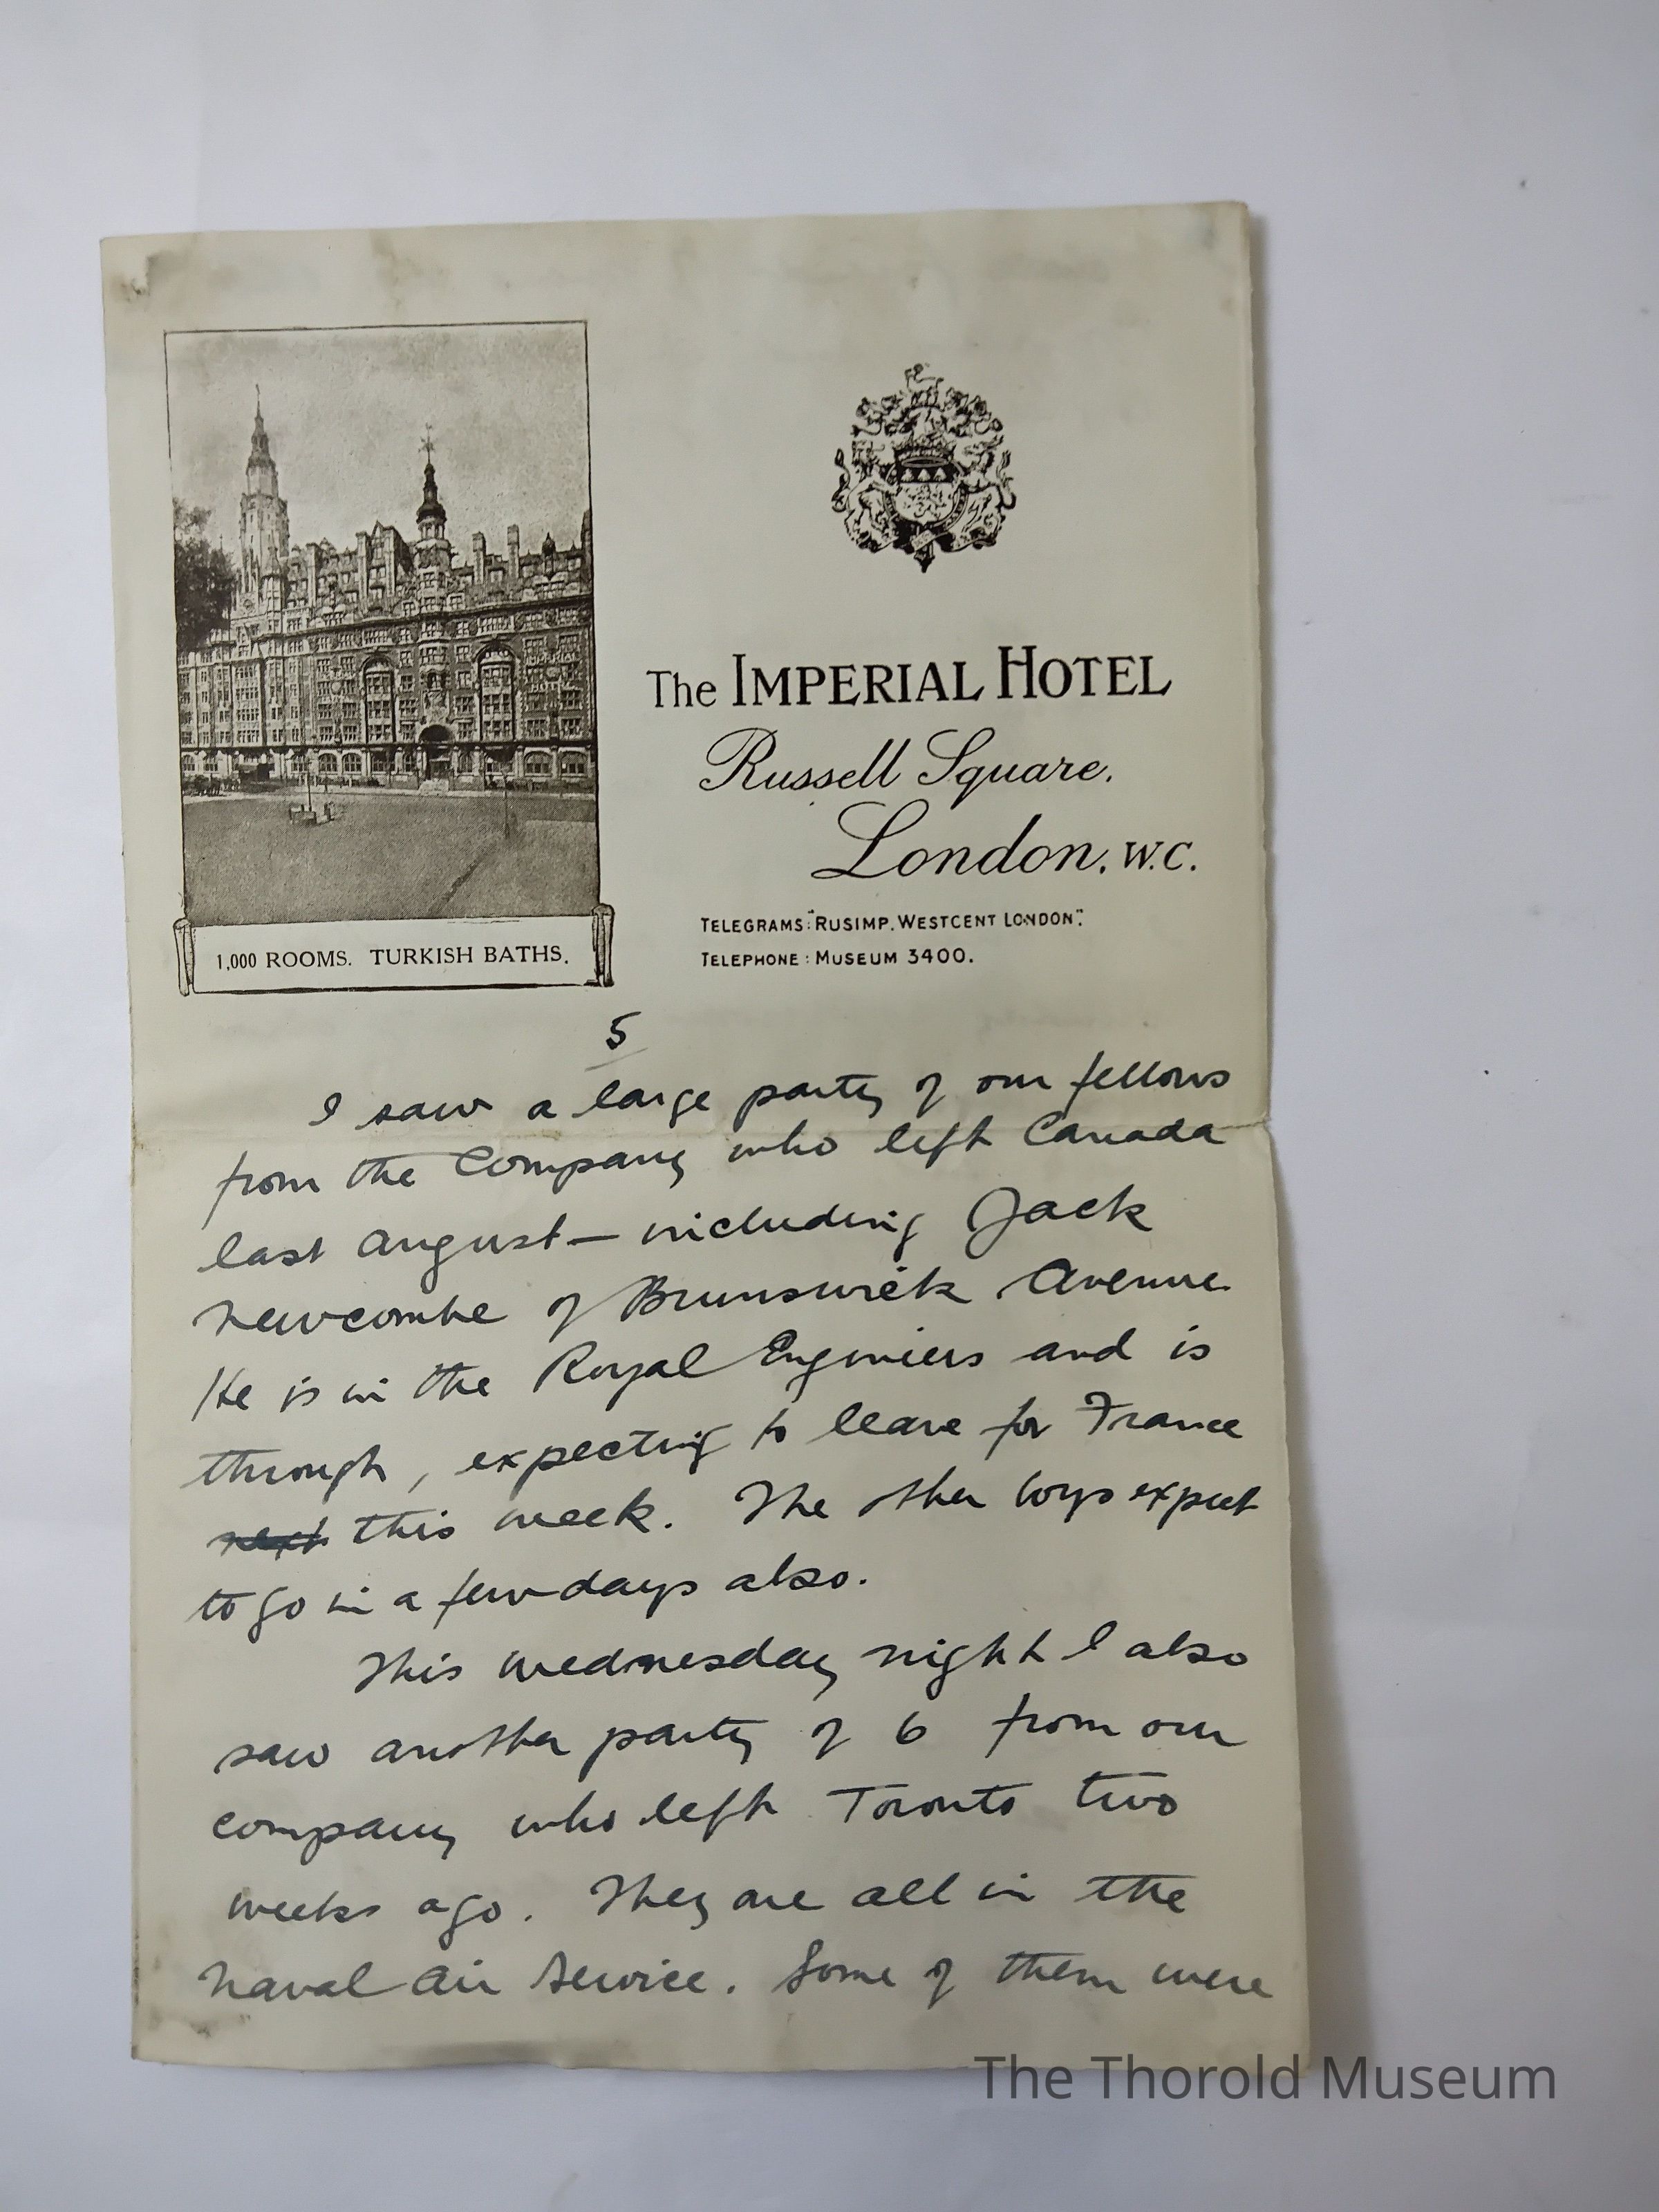 The IMPERIAL HOTEL
Russell Square.
London. W.C.
TELEGRAMS: "RUSIMP. WESTCENT LONDON".
TELEPHONE: MUSEUM 3400.
1,000 ROOMS. TURKISH BATHS.
5
I saw a large party of our fellows
from the Company who left Canada
last August — including Jack
Newcombe of Brunswick Avenue.
He is in the Royal Engineers and is
through, expecting to leave for France
next this week. The other boys expect
to go in a few days also.
This Wednesday night I also
saw another party of 6 from our
company who left Toronto two
weeks ago. They are all in the
Naval Air Service. Some of them were
The Thorold Museum